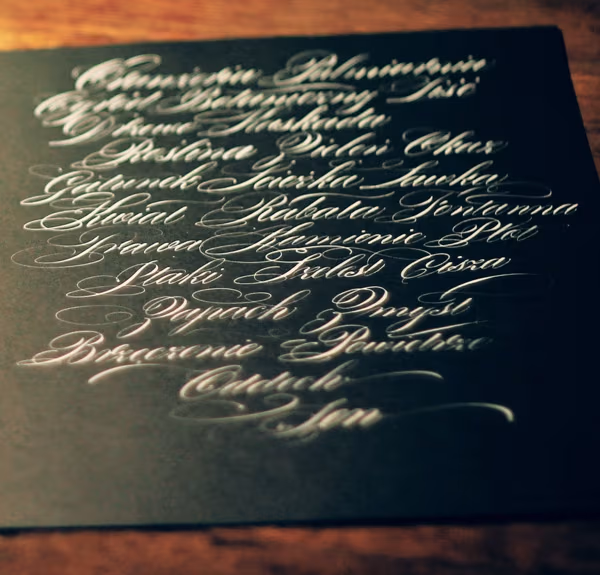 Oranżeria Palmiarnia
Ogród Botaniczny Liść
Drzewo Monstera
Roślina Zieleń Okaz
Gatunek Ścieżka Ławka
Kwiat Rabata Fontanna
Trawa Kamienie Płot
Ptaki Szelest Cisza
Zapach Zmysł
Brzęczenie Powietrze
Oddech
Sen